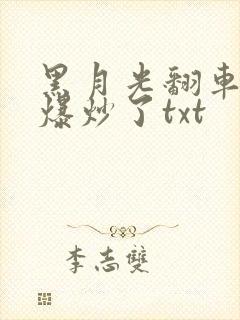 黑月光翻車
爆炒了txt
李志雙